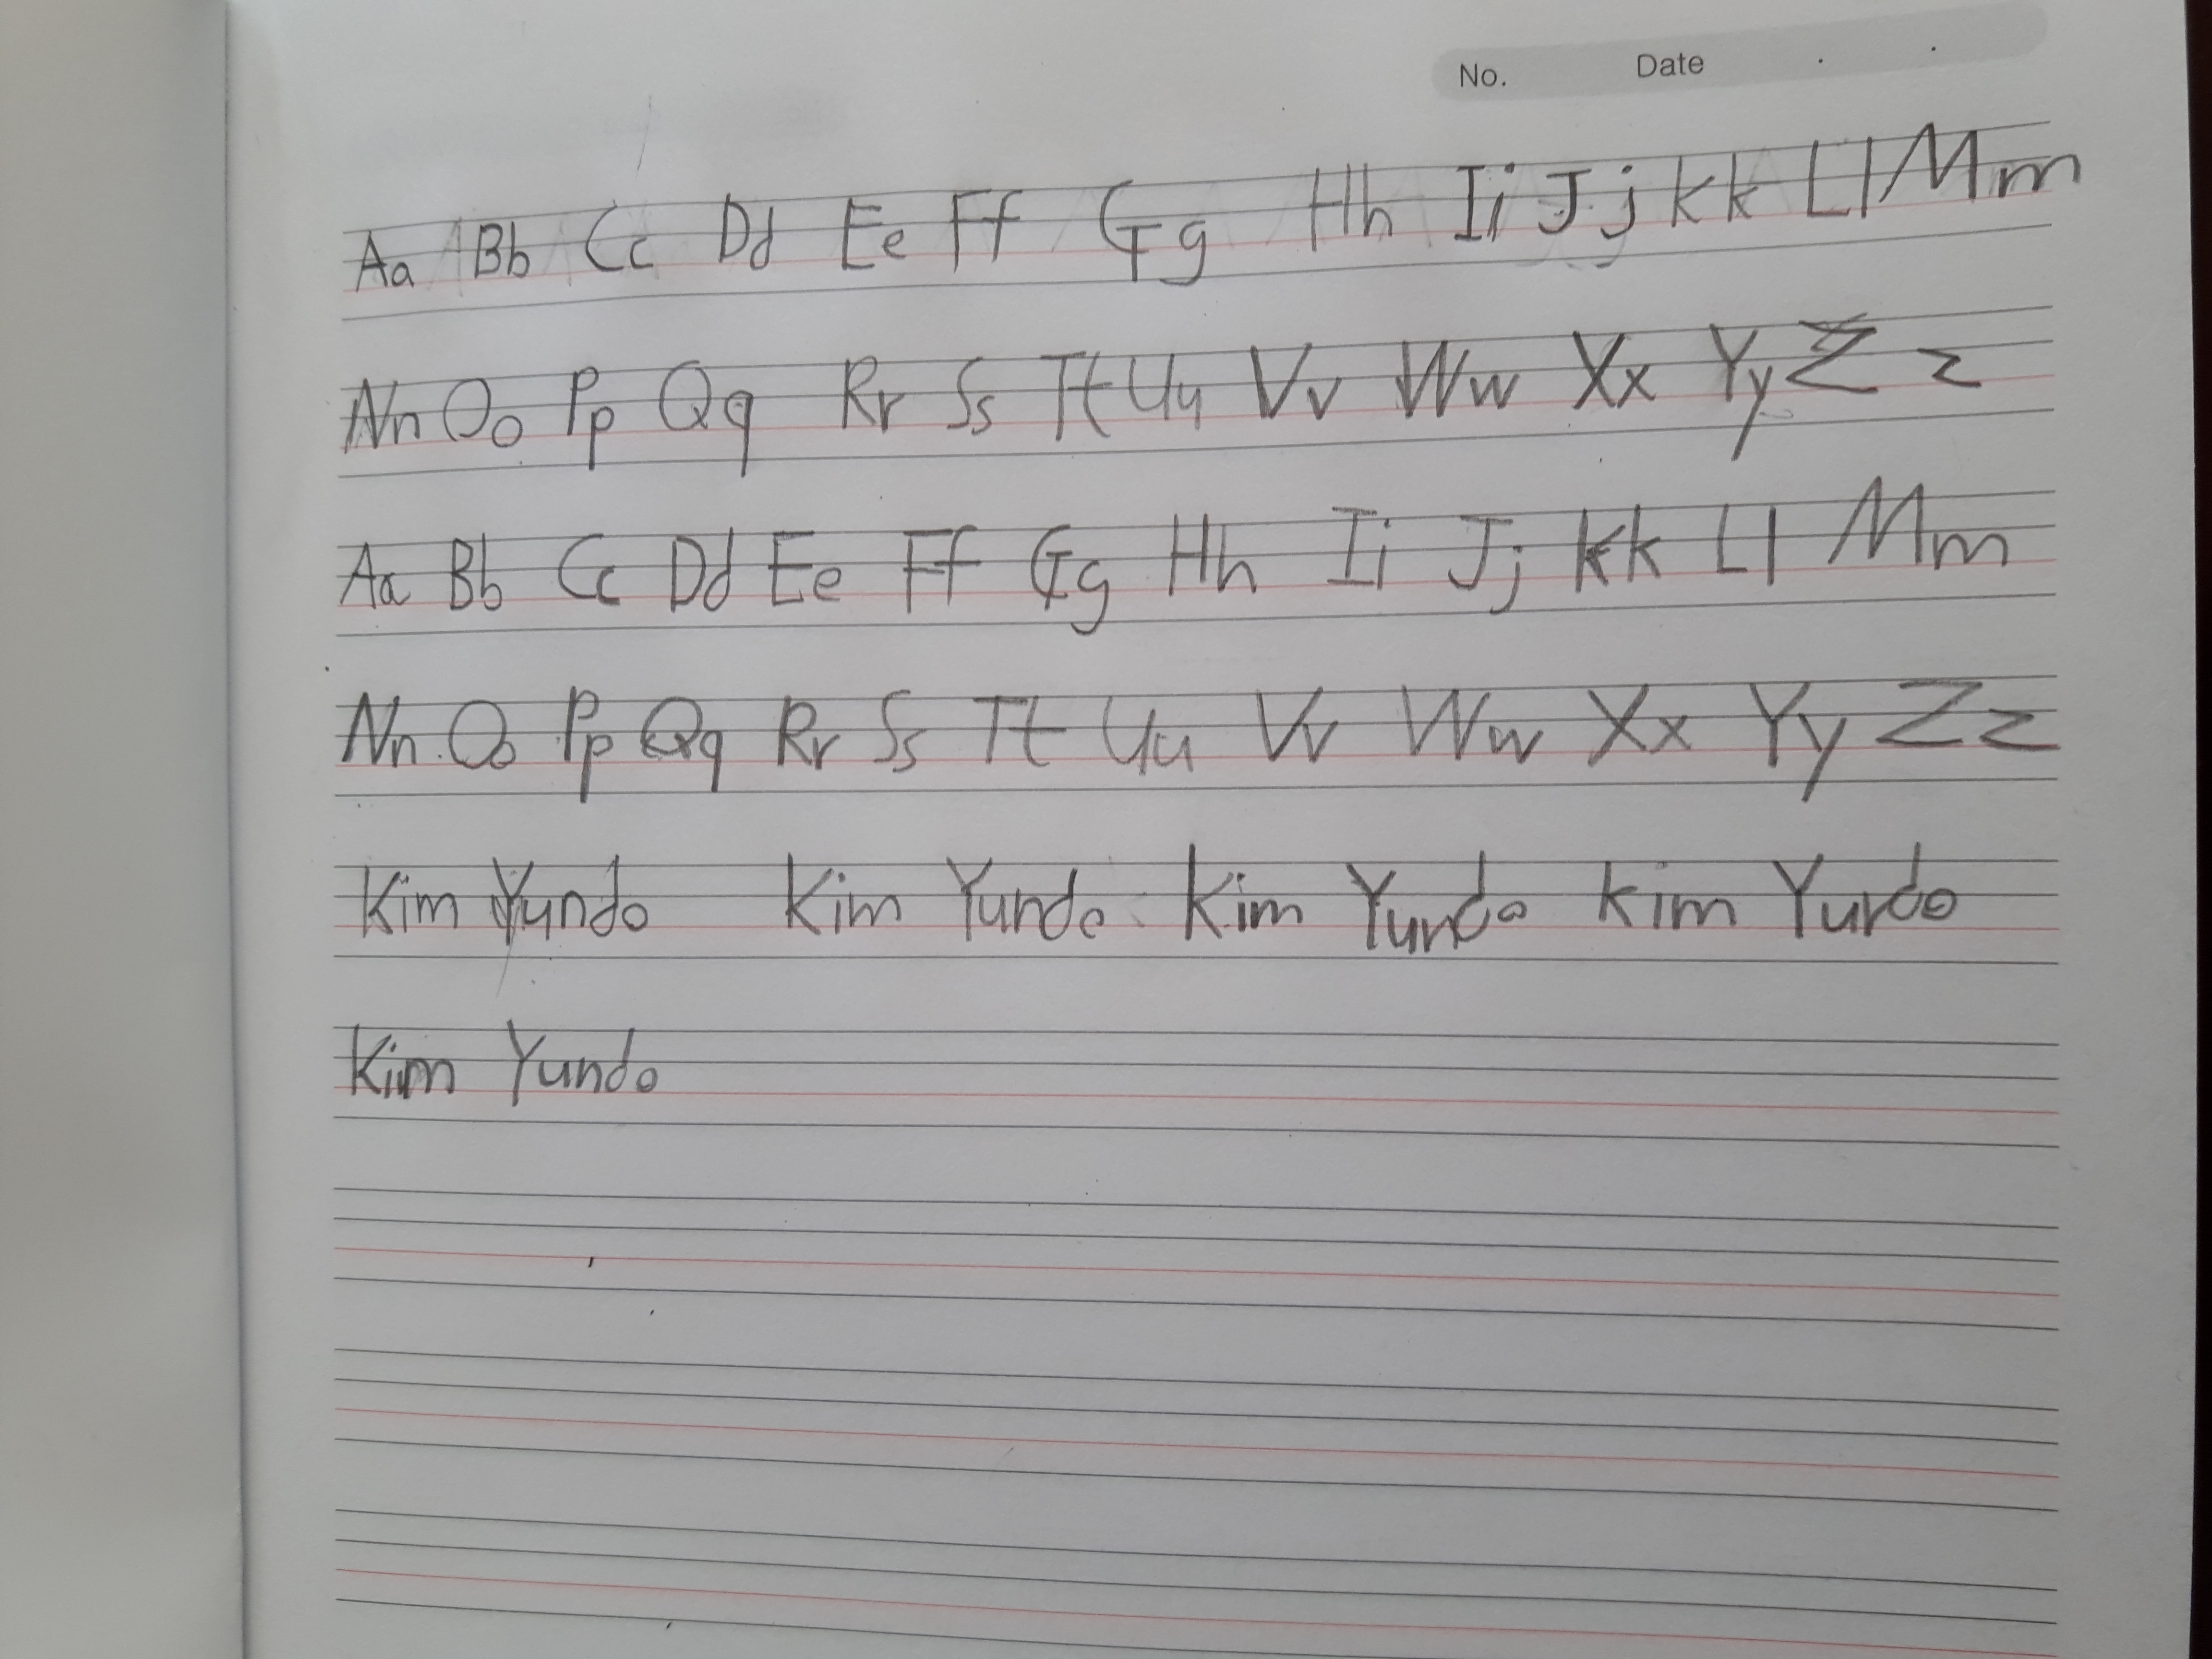 No. Date . .
Aa Bb Cc Dd Ee Ff Gg Hh Ii Jj Kk Ll Mm
Nn Oo Pp Qq Rr Ss Tt Uu Vv Ww Xx Yy Zz
Aa Bb Cc Dd Ee Ff Gg Hh Ii Jj Kk Ll Mm
Nn Oo Pp Qq Rr Ss Tt Uu Vv Ww Xx Yy Zz
Kim Yundo Kim Yundo Kim Yundo Kim Yundo
Kim Yundo